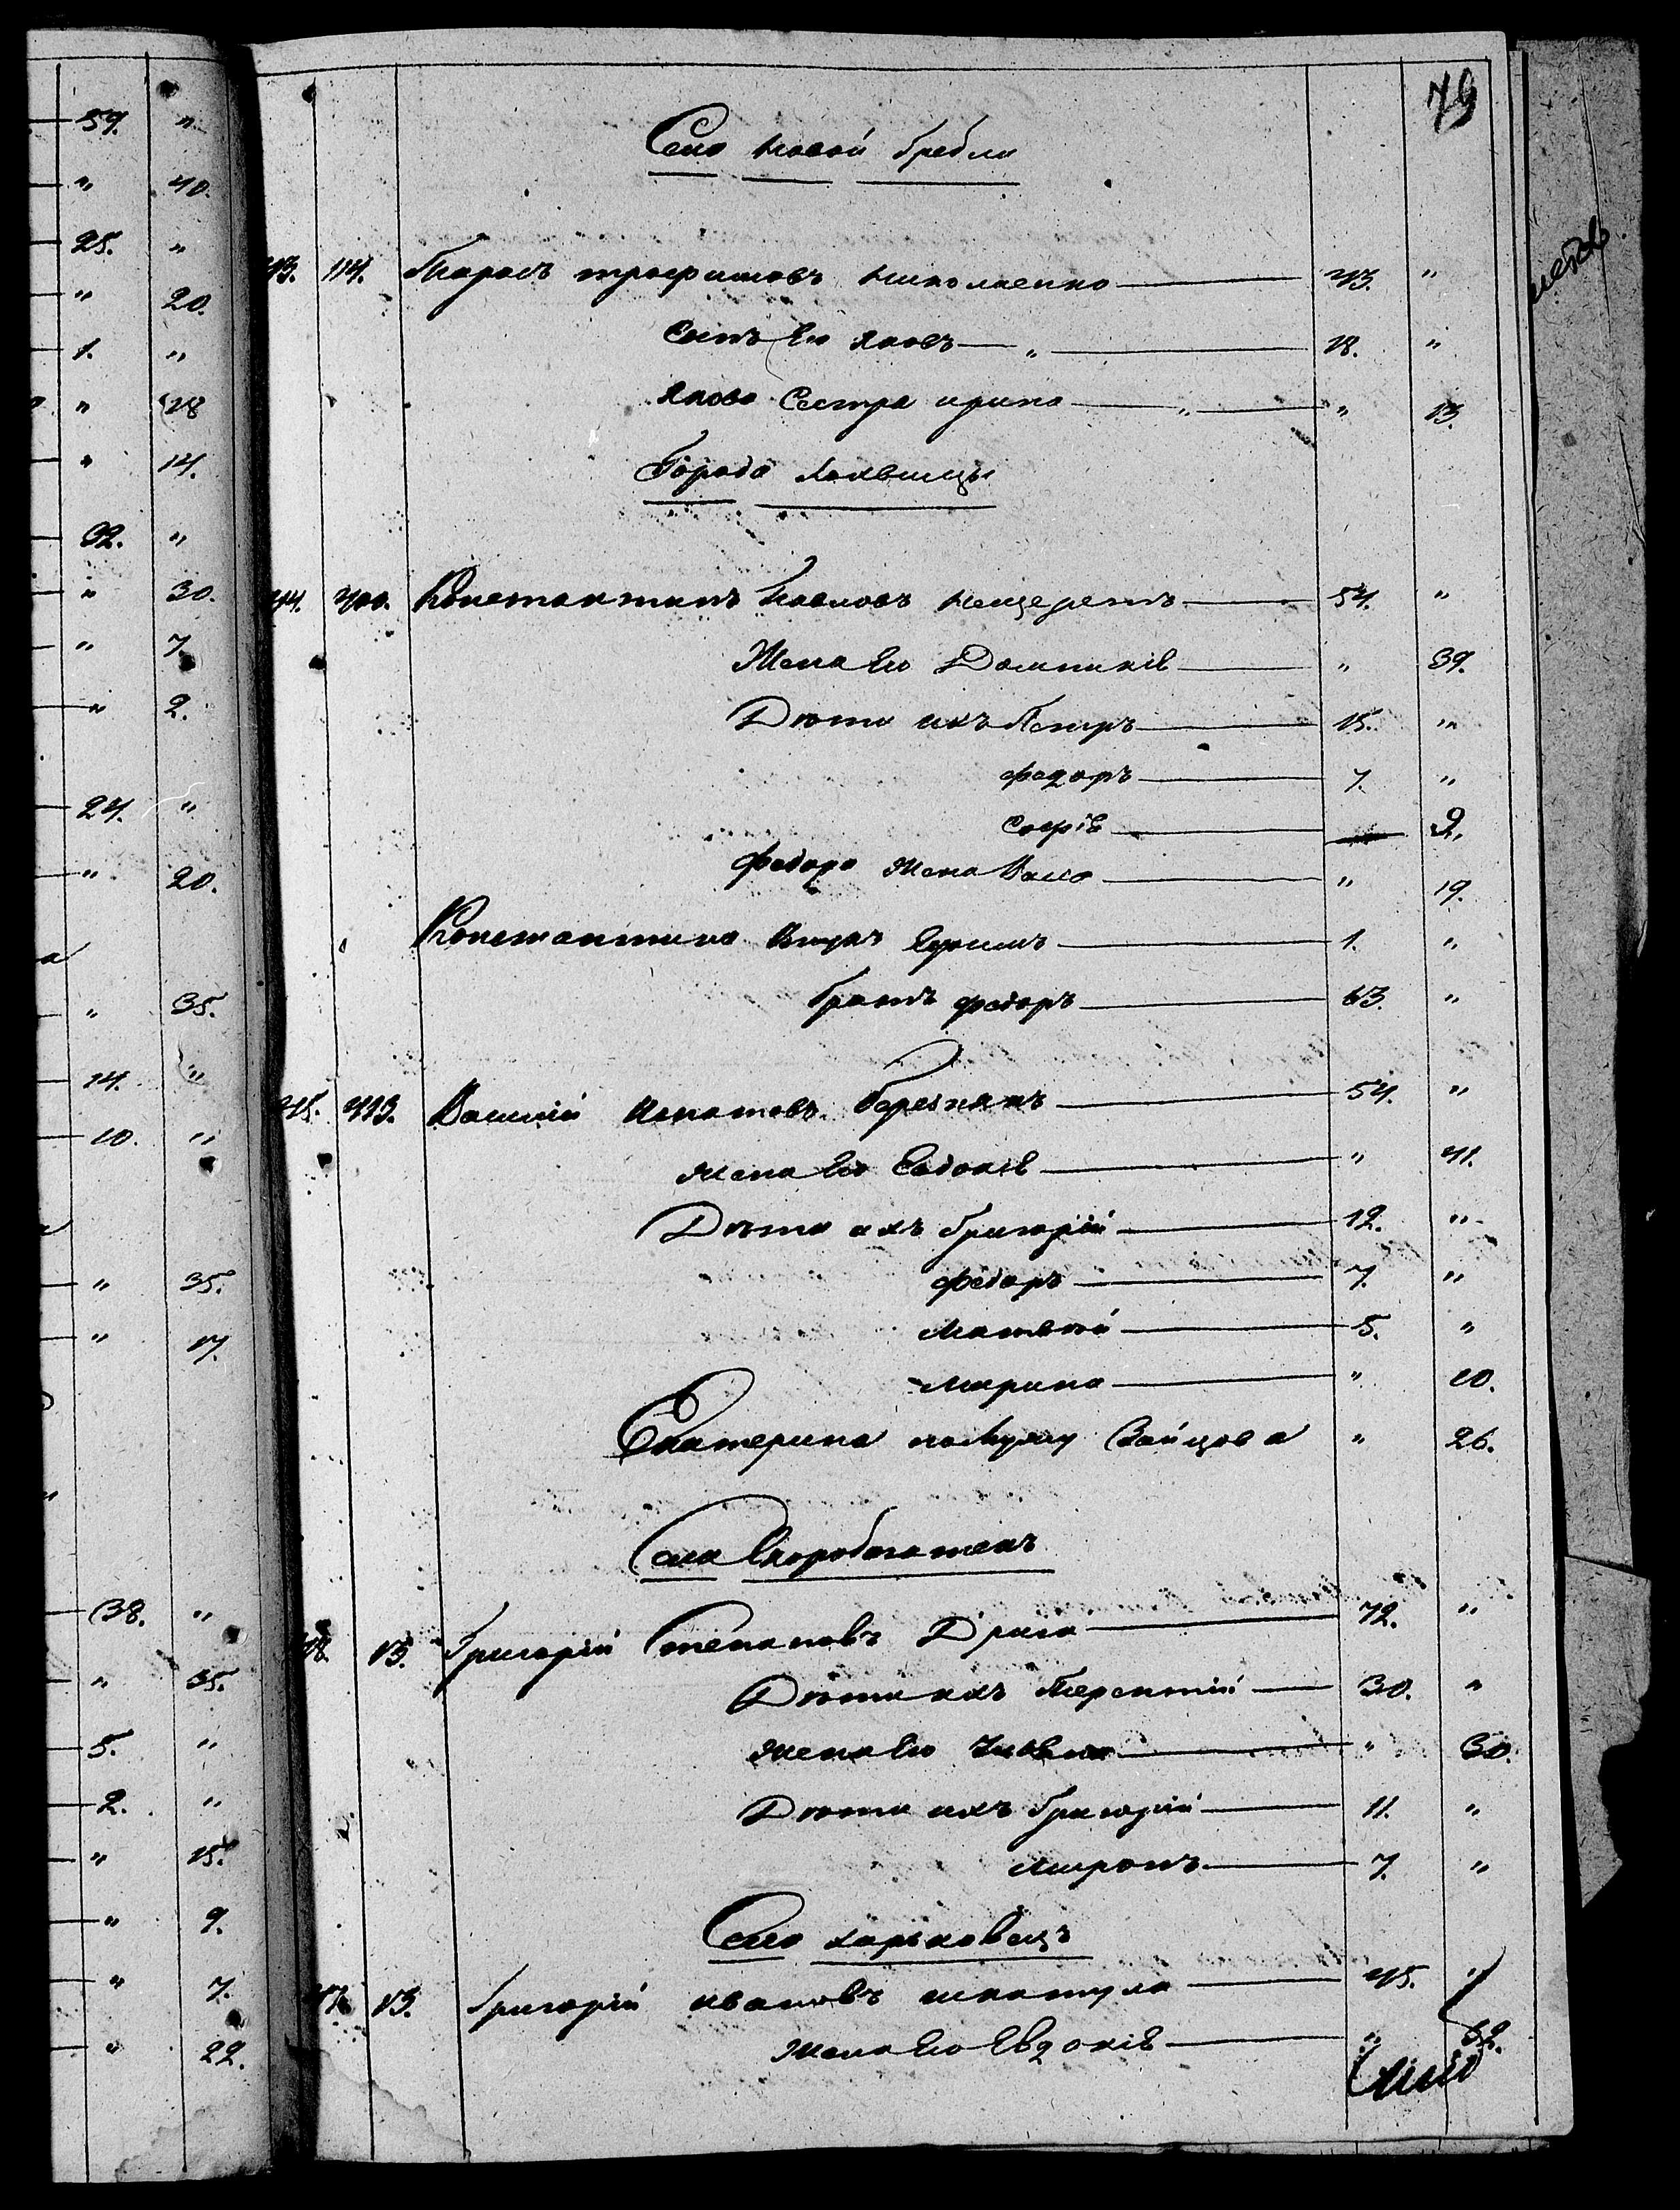 79
Села Новой Гребли
43. 114. Тарасъ трофимовъ Николаенко 43. "
Сынъ Его Яковъ " 18. "
Якова Сестра ирина " " 13.
Города Лохвицы
44. 400. Константинъ Павловъ Нещеретъ 54. "
Жена Его Домникія " 39.
Дѣти ихъ Петръ 15. "
федоръ 7. "
Софія 9.
федора Жена Васса " 19.
Константина Внукъ Ефимъ 1. "
братъ федоръ 63. "
45. 413. Василій Игнатовъ Бережнякъ 54. "
жена Его Евдокія " 41.
Дѣти ихъ Григорій 12. "
федоръ 7. "
Матвѣй 5. "
Марина " 10.
Екатерина по мужу Зайцова " 26.
Села Скоробогатекъ
13. Григорій Степановъ Драга 72. "
Дѣти ихъ Терентій 30. "
жена Его " 30.
Дѣти ихъ Григорій 11. "
миронъ 7. "
Село харьковецъ
13. Григорій ивановъ шкатула 45. "
жена Его Евдокія " 32.
59. "
" 40.
25. "
" 20.
1. "
" 28
" 14.
32. "
" 30.
" 7
" 2.
24. "
" 20.
" 35.
14. "
10. "
" 35.
" 17.
38. "
" 35.
5. "
2. "
" 15.
" 9.
" 7.
" 22.